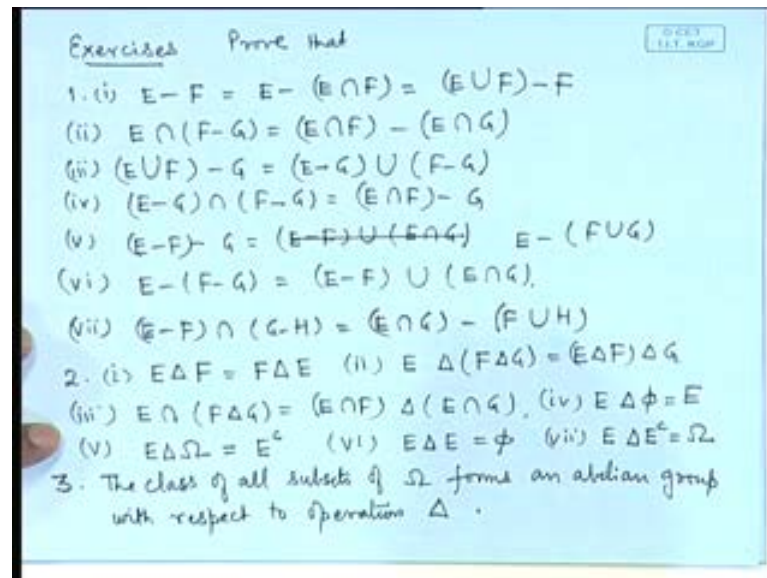 Exercises Prove that
1. (i) E - F = E - (E ∩ F) = (E ∪ F) - F
(ii) E ∩ (F - G) = (E ∩ F) - (E ∩ G)
(iii) (E ∪ F) - G = (E - G) ∪ (F - G)
(iv) (E - G) ∩ (F - G) = (E ∩ F) - G
(v) (E - F) - G = (E - F) ∪ (E ∩ G) E - (F ∪ G)
(vi) E - (F - G) = (E - F) ∪ (E ∩ G).
(vii) (E - F) ∩ (G - H) = (E ∩ G) - (F ∪ H)
2. (i) E Δ F = F Δ E (ii) E Δ (F Δ G) = (E Δ F) Δ G
(iii) E ∩ (F Δ G) = (E ∩ F) Δ (E ∩ G). (iv) E Δ ϕ = E
(v) E Δ Ω = Eᶜ (vi) E Δ E = ϕ (vii) E Δ Eᶜ = Ω
3. The class of all subsets of Ω forms an abelian group
with respect to operation Δ .
I.I.T. KGP